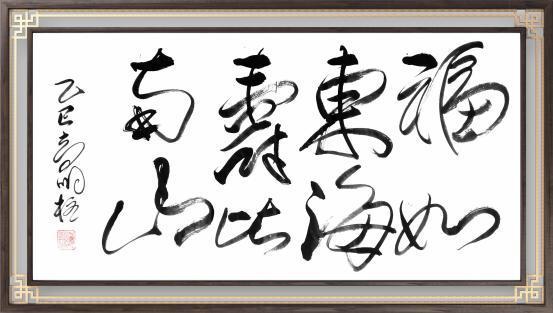 福如
東海
壽比
南山
乙巳 明